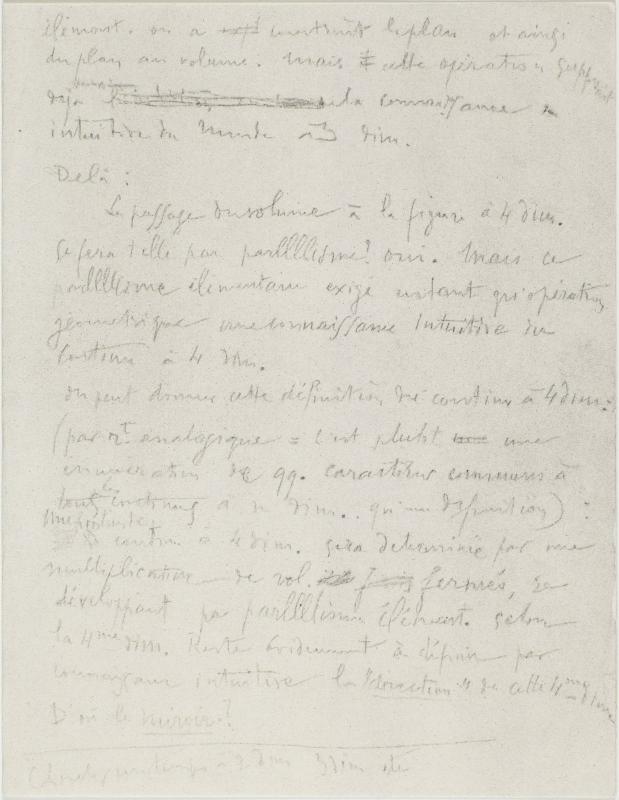 élément. on a construit le plan et ainsi
du plan au volume. Mais cette opération supposait
déjà la connaissance
intuitive du Monde à 3 dim.
De là :
Le passage du volume à la figure à 4 dim.
se fera t elle par parllllisme? oui. Mais ce
parllllisme élémentaire exige autant qu'opération
géométrique une connaissance intuitive du
Continu à 4 dim.
on peut donner cette définition du continu à 4 dim.:
(par rt. analogique = c'est plutôt une
enumeration de qq. caractères communs à
tous à n dim. qu'une définition) :
continu à 4 dim. sera déterminé par une
multiplication de vol. fermés, se
développant par parllllisme élément. selon
la 4me dim. Reste évidemment à définir par
connaissance intuitive la "direction" de cette 4me dim
D'où le miroir?
à 2 dim 3 dim etc